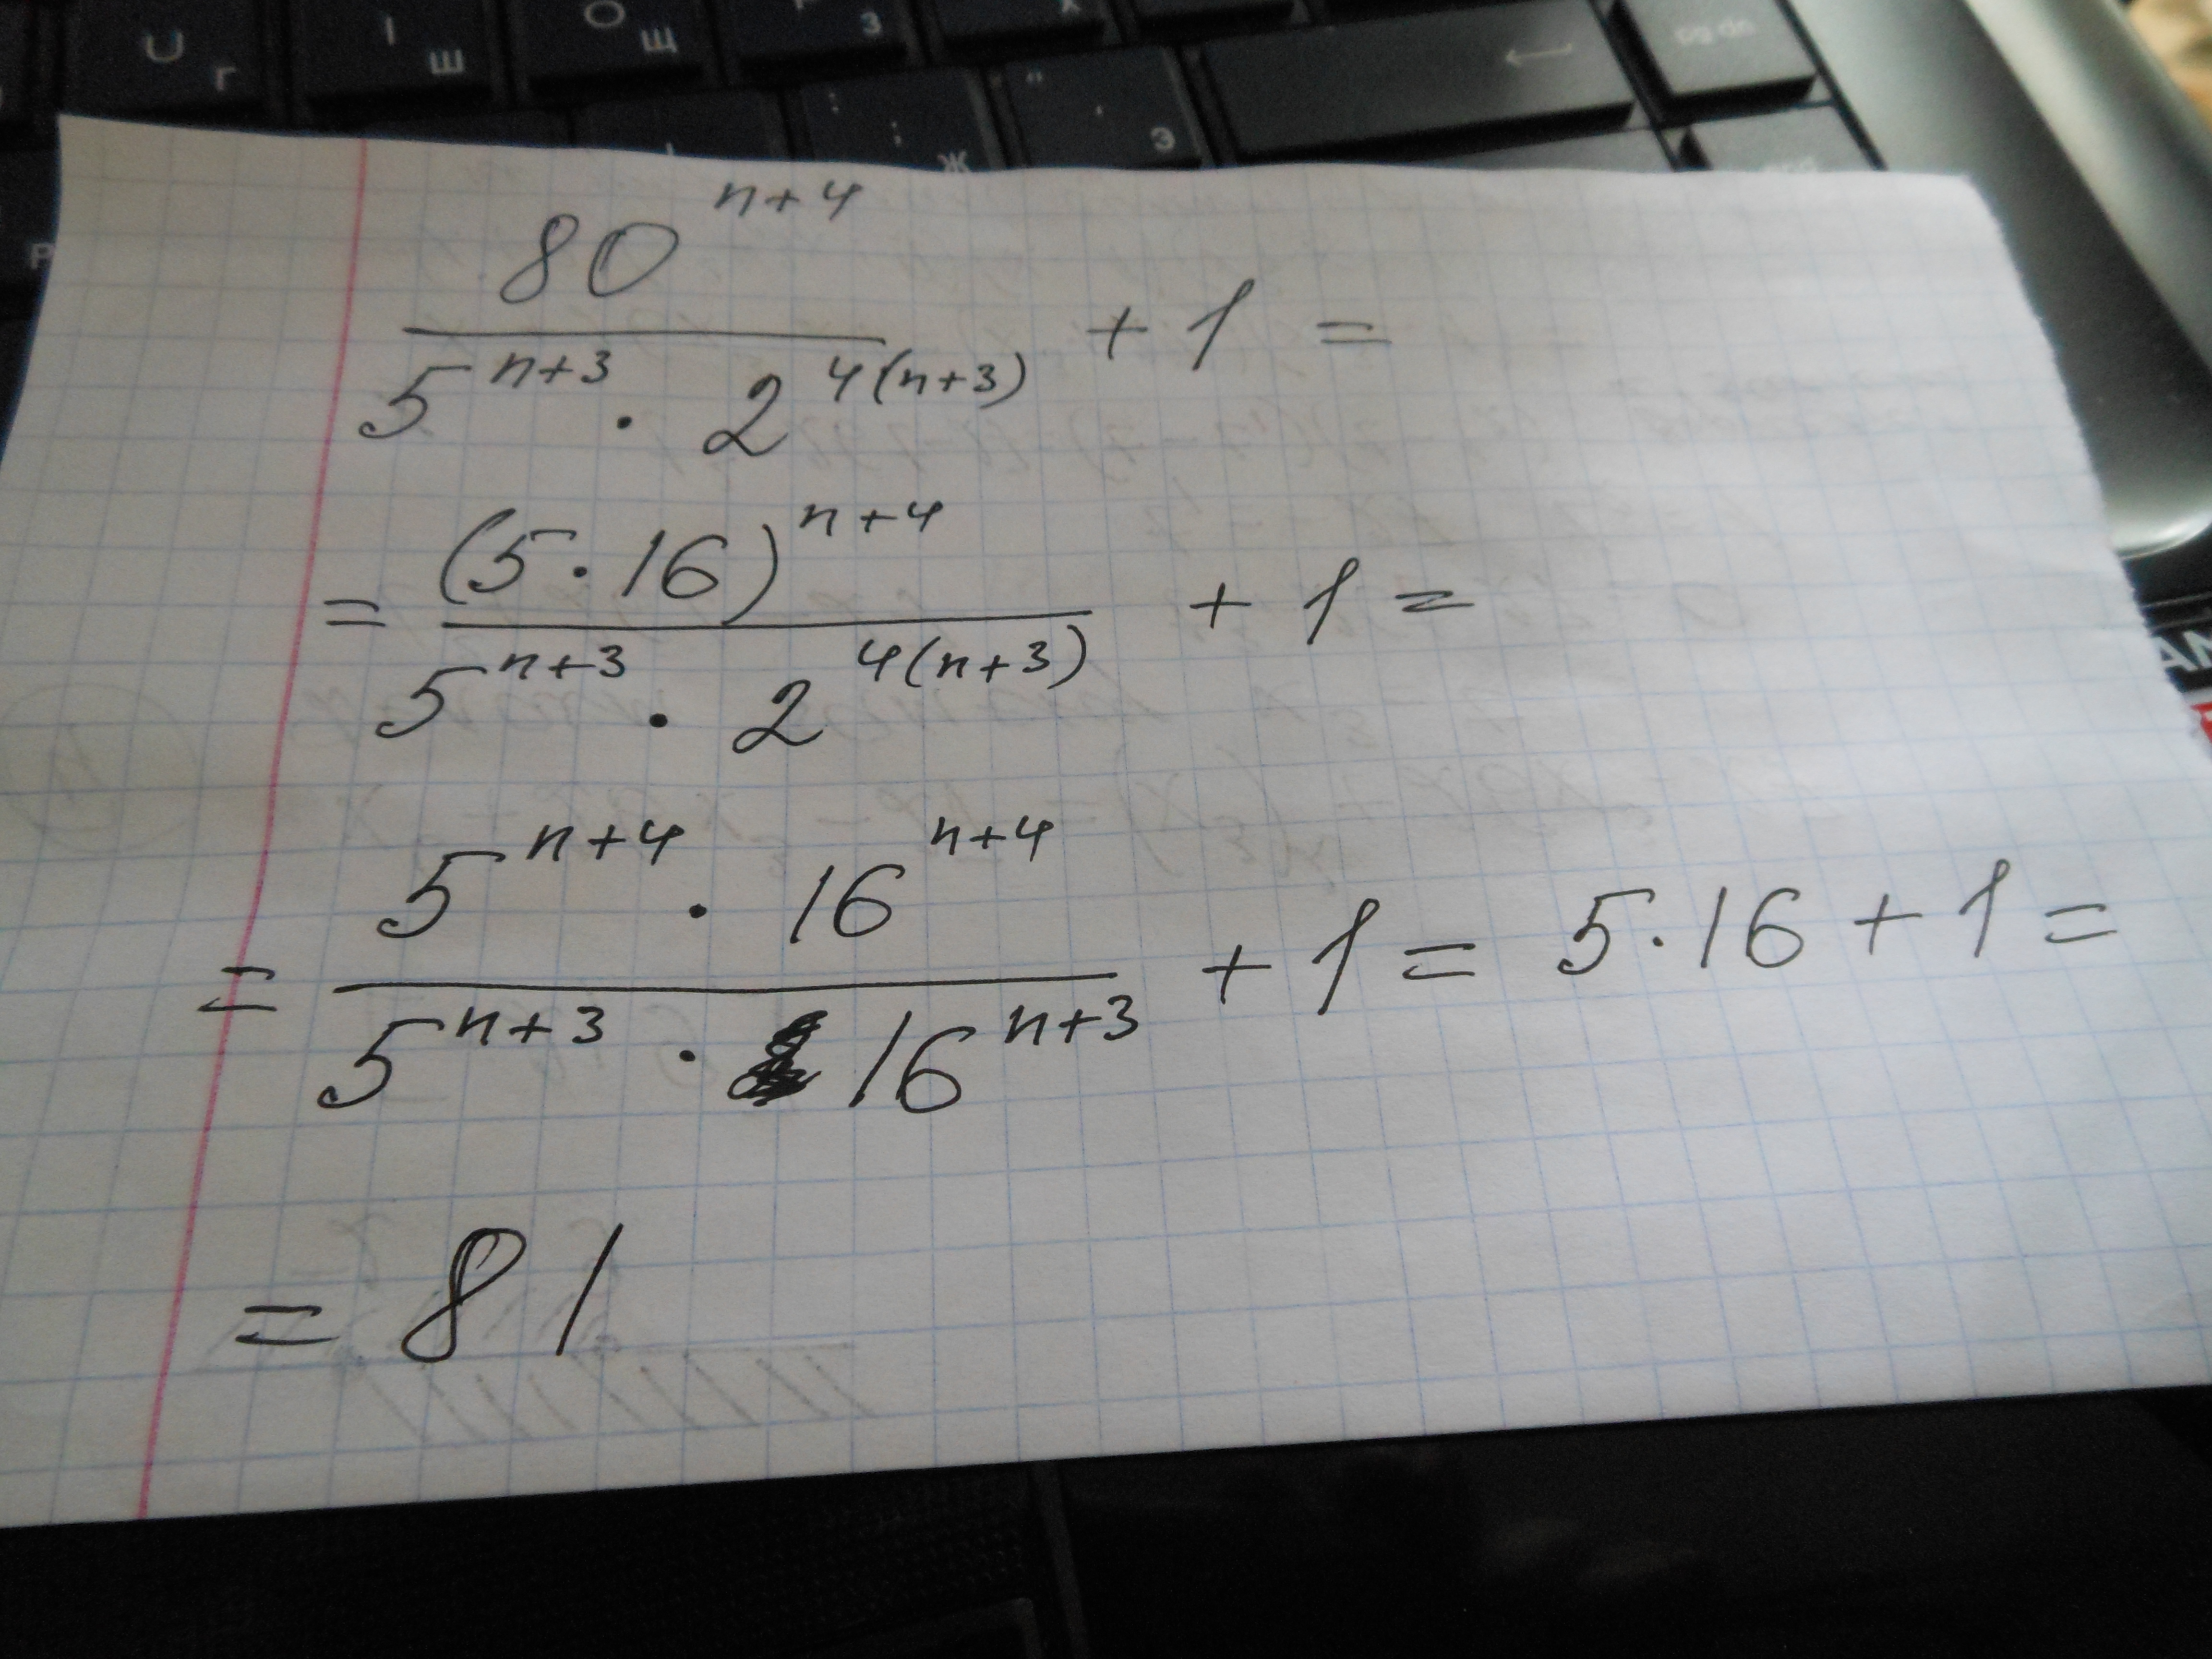 г ш щ з х pg dn
ж э
80^{n+4} / (5^{n+3} · 2^{4(n+3)}) + 1 =
= (5·16)^{n+4} / (5^{n+3} · 2^{4(n+3)}) + 1 =
= (5^{n+4} · 16^{n+4}) / (5^{n+3} · 16^{n+3}) + 1 = 5·16 + 1 =
= 81